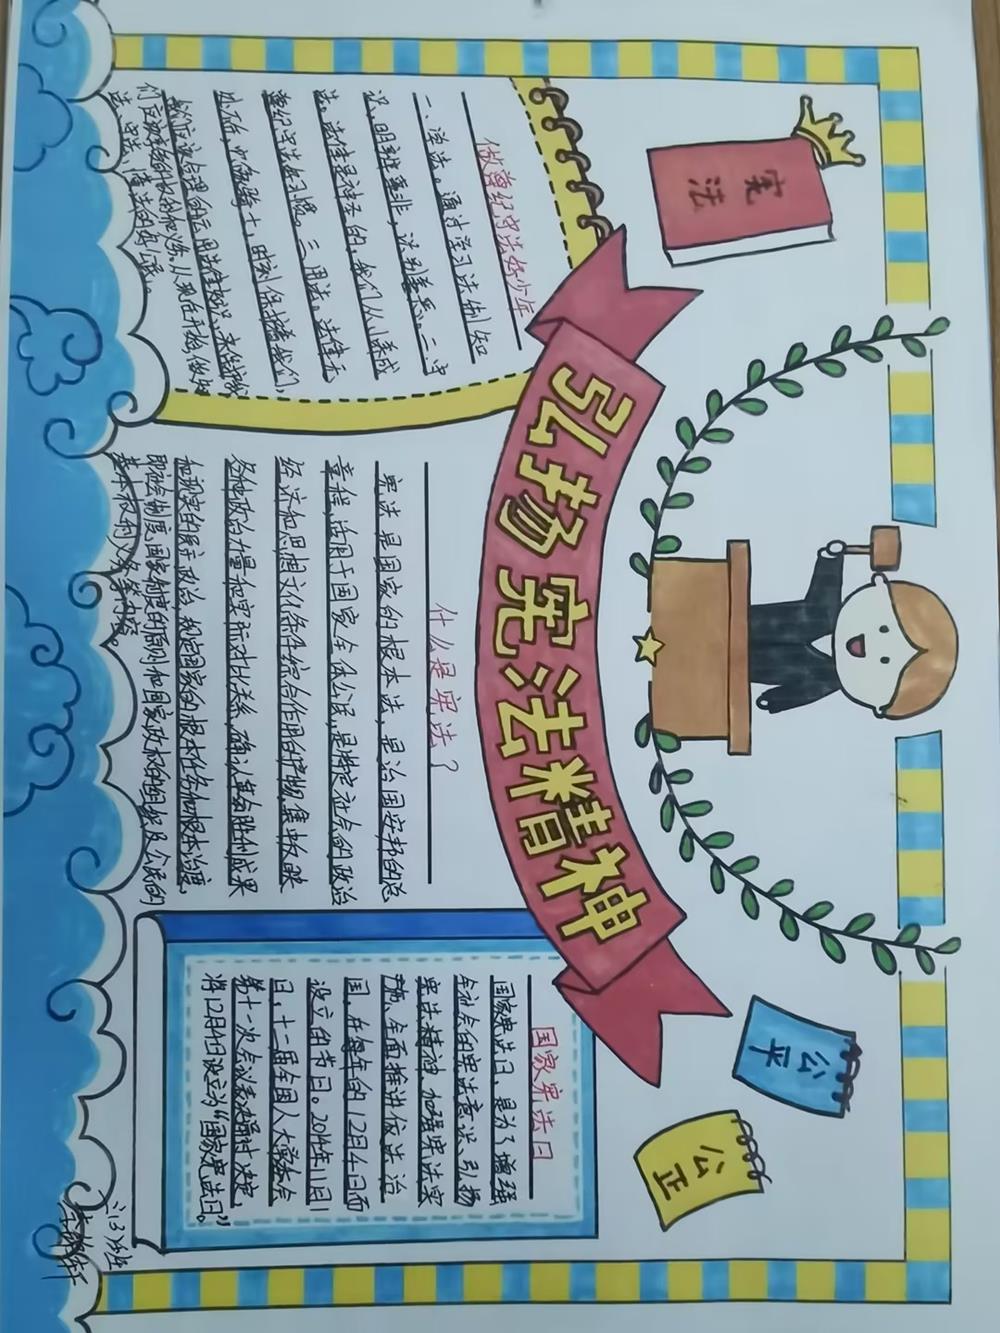 宪法
公平
公正
弘扬宪法精神
做尊纪守法好少年
一、学法。通过学习法制知
识,明辨是非,识别善恶。二、守
法。法律是神圣的,我们从小养成
遵纪守法好习惯。三、用法。法律无
处不在,它像骑士,时刻保护着我们,
我们应该合理的运用法律知识,来维护我
们应该享有的权利和,从现在开始,做知
法、守法、懂法的好公民。
什么是宪法?
宪法是国家的根本法,是治国安邦的总
章程,适用于国家全体公民,是特定社会的政治
经济和思想文化条件综合作用的产物,集中反映
各种政治力量和实际对比关系,确认革命胜利成果
和现实的民主政治,规定国家的根本任务和根本制度,
即社会制度、国家制度的原则和国家政权的组织及公民的
基本权利义务等内容。
国家宪法日
国家宪法日,是为了增强
全社会的宪法意识、弘扬
宪法精神、加强宪法实
施、全面推进依法治
国,在每年的12月4日而
设立的节日。2014年11月1
日,十二届全国人大常委会
第十一次会议表决通过决定,
将12月4日设立为“国家宪法日。”
(3)班